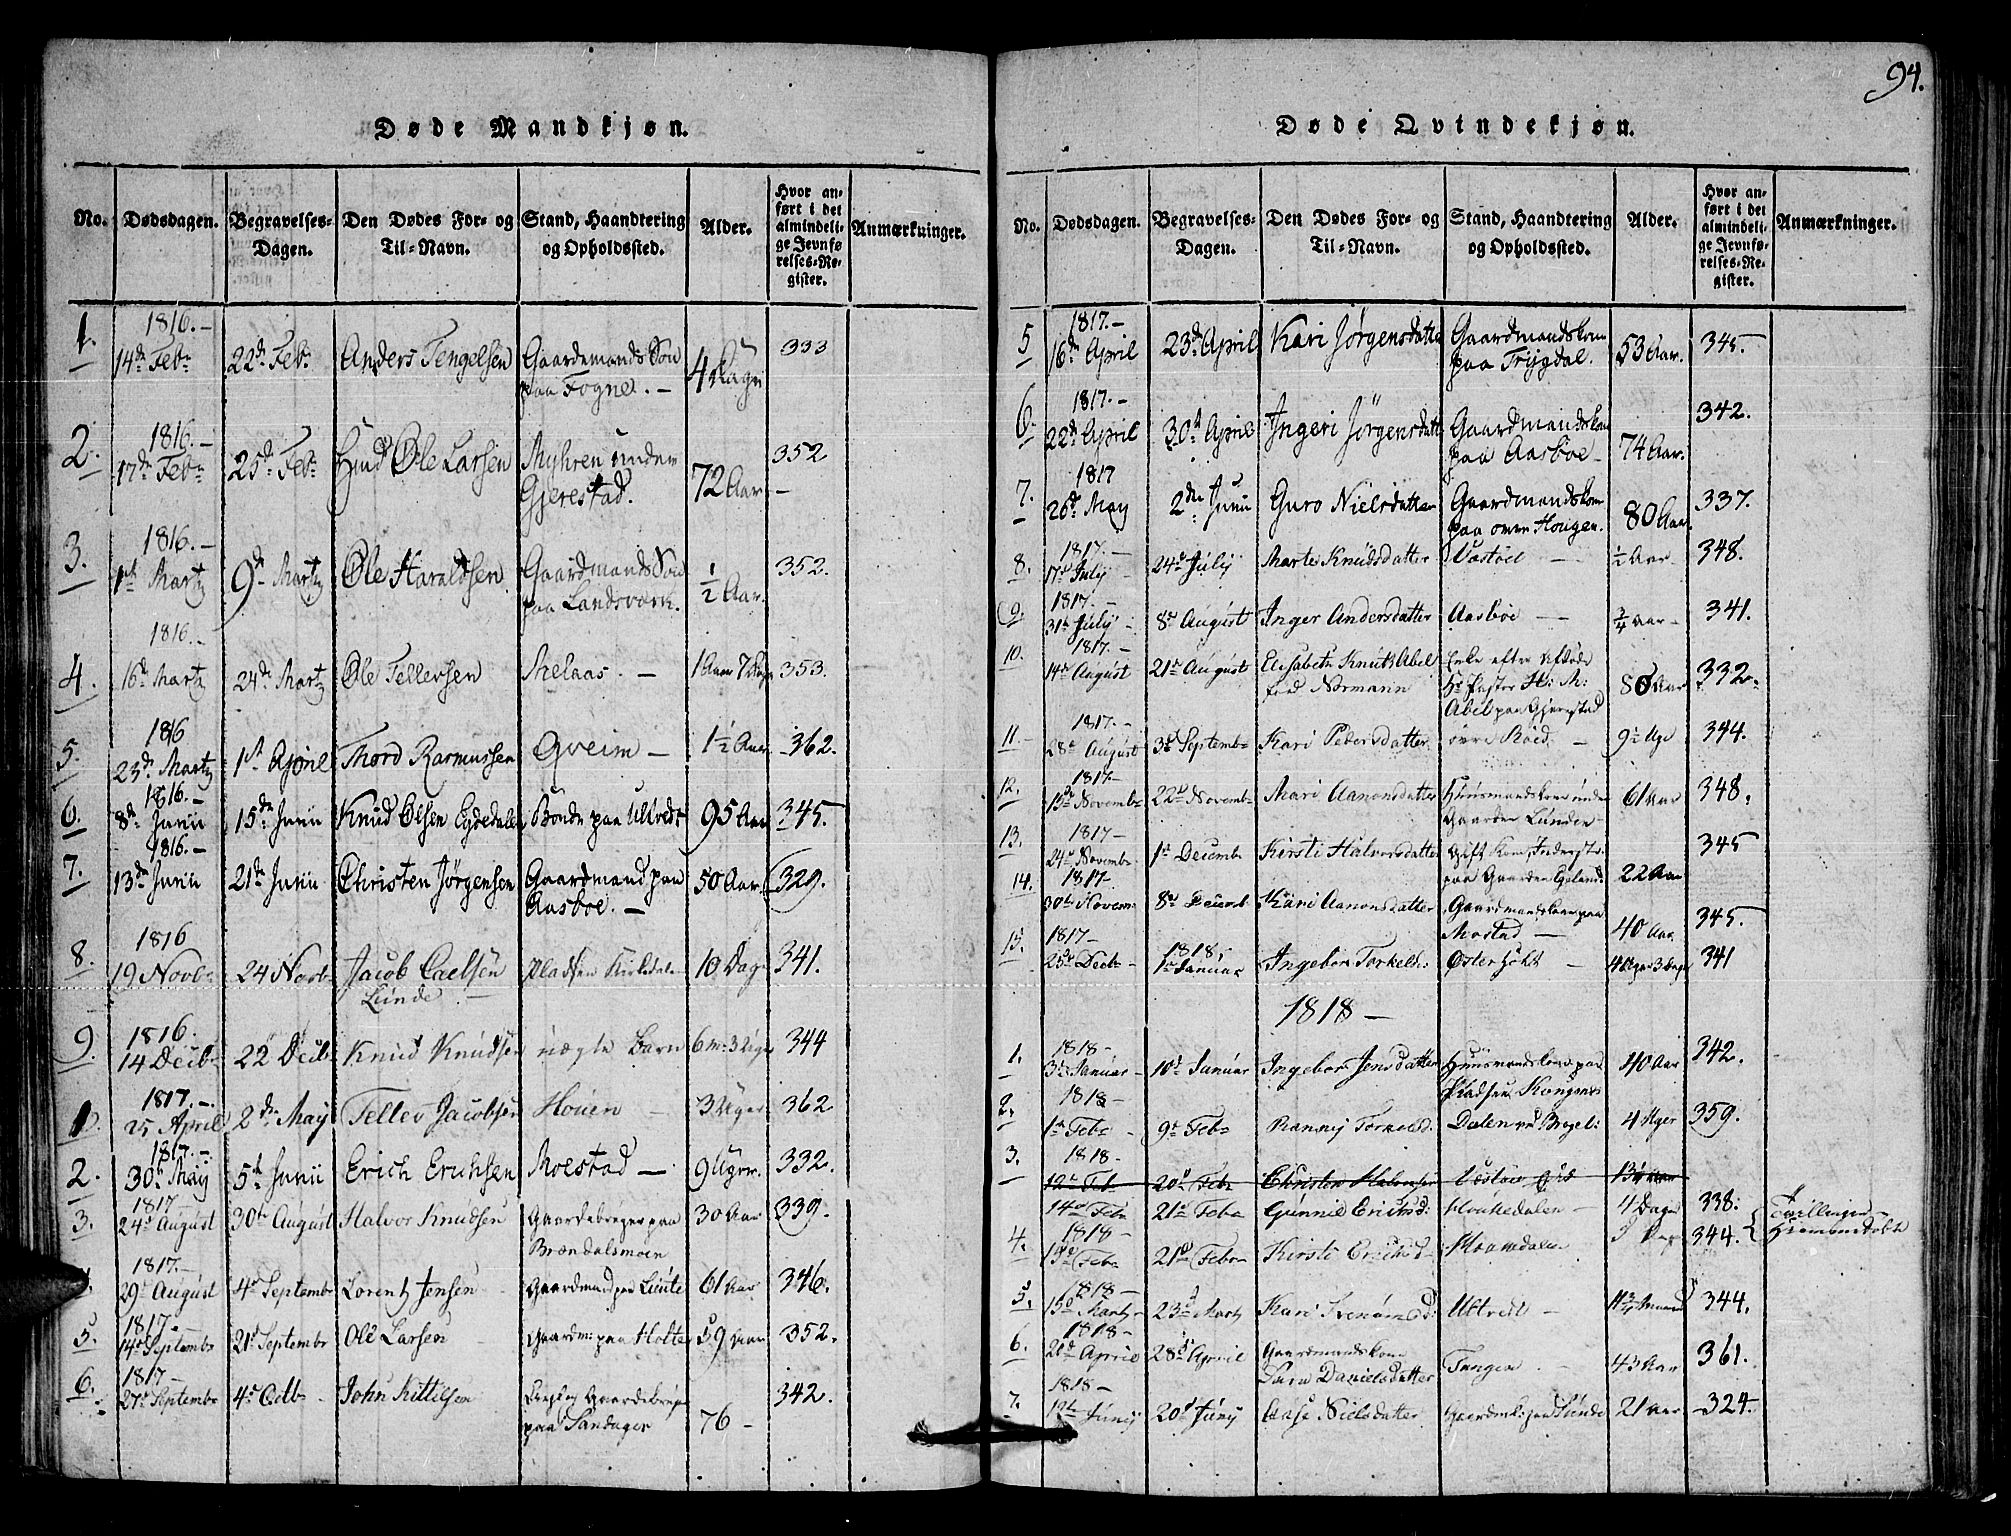 94.
Døde Mandkjøn.
No. Dødsdagen. Begravelses-Dagen. Den Dødes For- og Til-Navn. Stand, Haandtering og Opholdssted. Alder. Hvor anført i det almindelige Jevnførelses-Register. Anmærkninger.
1. 1816.- 14de Febr 22de Febr Anders Tengelsen Gaardmands Søn paa Fogne.- 4 333
2. 1816.- 17de Febr 25de Febr Ole Larsen Myhren under Gjerestad. 72 Aar- 352
3. 1816.- 1ste Martz 9de Martz Ole Haraldsen Gaardmands Søn paa Landsverk. ½ Aar. 352.
4. 1816.- 16de Martz 24de Martz Ole Tellefsen Melaas.- 1 Aar 7 353.
5. 1816 23de Martz 1st April Thord Rasmussen Qveim- 1½ Aar 362.
6. 1816.- 8de Junii 15de Junii Knud Olsen Eydedalen Bonde paa Ulltvedt 95 Aar 345.
7. 1816.- 13de Junii 21de Junii Christen Jørgensen Gaardmand paa Aasboe.- 50 Aar. 329.
8. 1816 19 Novbr 24 Novbr Jacob Carlsen Lunde- Pladsen 10 Dag 341.
9. 1816. 14 Decbr 22 Decbr Knud Knudsen uægte Barn 6 m: 3 Uger 344
1. 1817.- 25 April 2de May Tellev Jacobsen Houen- 3 Uger 362
2. 1817.- 30te May 5te Junii Erich Erichsen Moestad- 9 Uger. 332.
3. 1817 24de August 30te August Halvor Knudsen Gaardebruger paa Brændalsmoen 30 Aar 339.
1817.- 29de August 4de Septembr Lorentz Jensen Gaardmand paa Lunde 61 Aar 346.
5. 1817.- 14de Septembr 21de Septembr Ole Larsen Gaardm: paa Holte 59 Aar 352.
6. 1817- 27de Septembr 4de Octb- John Kittilsen paa Sandager 76- 342.
Døde Qvindekjøn.
No. Dødsdagen. Begravelses-Dagen. Den Dødes For- og Til-Navn. Stand, Haandtering og Opholdssted. Alder. Hvor anført i det almindelige Jevnførelses-Register. Anmærkninger.
5 1817.- 16de April 23de April Kari Jørgensdatter Gaardmandskone paa Trygdal. 53 Aar. 345.
6. 1817.- 22de April 30te April Ingeri Jørgensdatt Gaardmandskone paa Aasboe- 74 Aar. 342.
7. 1817 26de May 2den Junii Guro Nielsdatter Gaardmandskone paa øvre Hougen. 80 Aar. 337.
8. 1817.- 17de July 24de July Marte Knudsdatter Vastøl- ½ Aar 348.
9. 1817.- 31te July 8de August Inger Andersdatter Aasboe- ¾ Aar- 341.
10. 1817.- 14de August 21de August Elisabeth Knuts Abel fød Normann Enke efter Afdøde Hr Pastor H: M: Abel paa Gjerestad 80 Aar 332.
11. 1817.- 28de August 3de Septembr Kari Pedersdatter øvre Röed.- 9½ Uge 344.
12. 1817.- 15de Novembr 22de Novembr Mari Aanonsdatter Huusmandskone under Gaarden Lunden- 61 Aar 348.
13. 1817- 24de Novembr 1st Decembr Kirsti Halvorsdatter Gift Kone paa Gaarden 22 Aar 345
14. 1817. 30te Novem: 8de Decemb Kari Aanonsdatter Gaardmandskone paa Mostad- 40 Aar. 345.
15. 1817- 25de Decbr 1818, 1ste Januar Ingebor Torkelsd: Østerholt- 4 Uger 3 Dage 341
1818-
1. 1818- 3de Januar- 10de Januar Ingebor Jensdatter Huusmandskone paa Pladsen Kongens 40 Aar 342.
2. 1818- 1ste Febr- 9de Febr Ranney Torkelsd: Dalen 4 Uger 359.
3. 1818- 12te Feb 20de Febr Christen Halvorsen 13
14de Febr 21de Febr Gunnild Erichsd: 4 Dage 338: Tvillinger
4. 1818- 15de Febr 21de Febr Kirsti Erichsd- 344. Hiemmedøbt
5. 1818- 15de Martz 23de Martz Kari Ultvedt- 344.
6. 1818- 20de April 28de April Gaardmandskone Sara Danielsdatter Tangen- 43 Aar 361.
7. 1818- 12te Juny 20de Juny Aase Nielsdatter Gaardmk: paa Lunde 21 Aar- 324.